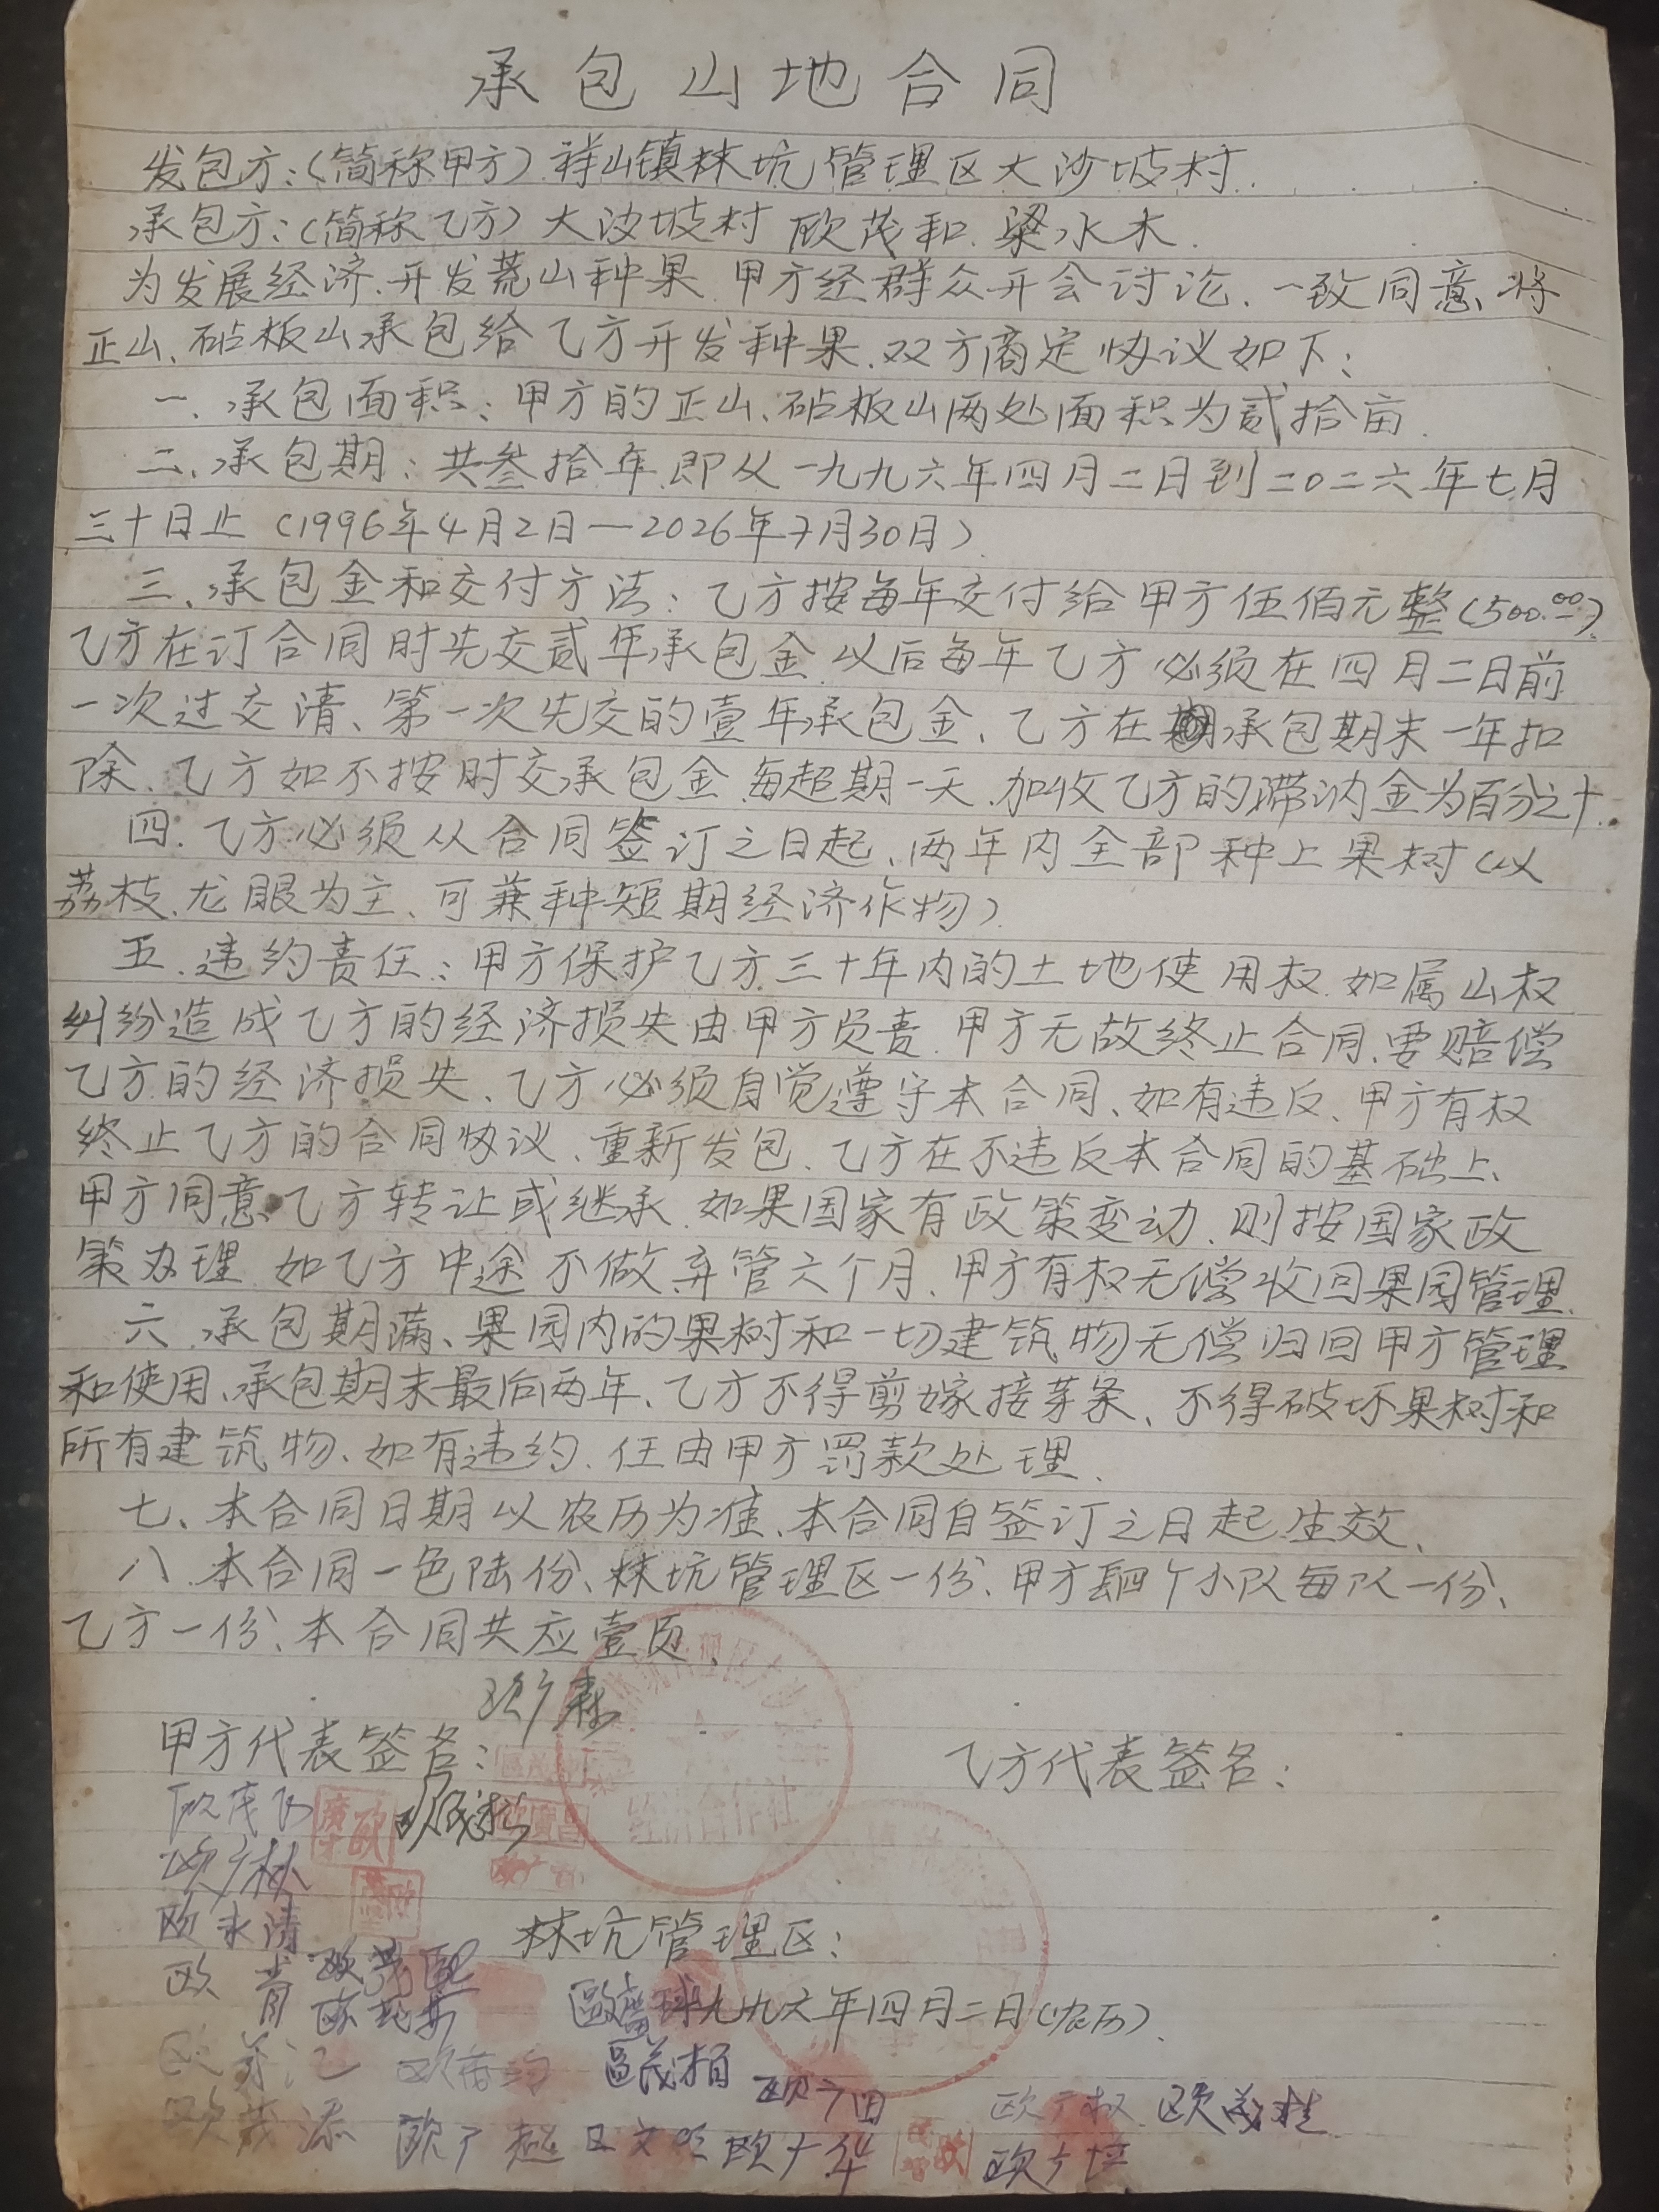 承包山地合同
发包方:(简称甲方)祥山镇林坑管理区大沙坡村.
承包方:(简称乙方)大沙坡村 欧茂和.梁水木.
为发展经济.开发荒山种果.甲方经群众开会讨论、一致同意将
正山、砧板山承包给乙方开发种果.双方商定协议如下:
一.承包面积:甲方的正山、砧板山两处面积为贰拾亩.
二.承包期:共叁拾年.即从一九九六年四月二日到二0二六年七月
三十日止(1996年4月2日—2026年7月30日).
三、承包金和交付方法:乙方按每年交付给甲方伍佰元整(500.00).
乙方在订合同时先交贰年承包金.以后每年乙方必须在四月二日前
一次过交清、第一次先交的壹年承包金、乙方在承包期末一年扣
除.乙方如不按时交承包金.每超期一天.加收乙方的滞纳金为百分之十.
四.乙方必须从合同签订之日起、两年内全部种上果树(以
荔枝.龙眼为主、可兼种短期经济作物)
五.违约责任:甲方保护乙方三十年内的土地使用权.如属山权
纠纷造成乙方的经济损失由甲方负责.甲方无故终止合同.要赔偿
乙方的经济损失、乙方必须自觉遵守本合同、如有违反、甲方有权
终止乙方的合同协议、重新发包、乙方在不违反本合同的基础上、
甲方同意乙方转让或继承.如果国家有政策变动.则按国家政
策办理.如乙方中途不做弃管六个月.甲方有权无偿收回果园管理.
六.承包期满、果园内的果树和一切建筑物无偿归回甲方管理
和使用、承包期末最后两年、乙方不得剪嫁接芽条、不得破坏果树和
所有建筑物、如有违约.任由甲方罚款处理.
七、本合同日期以农历为准、本合同自签订之日起生效、
八.本合同一色陆份、林坑管理区一份.甲方四个小队每队一份、
乙方一份、本合同共应壹页、
欧广森
甲方代表签名:
乙方代表签名:
经济合作社
欧广林
欧永清
林坑管理区:
欧 肯
九九六年四月二日(农历).
區茂相
欧广田
欧广权 欧茂桂
欧茂添
欧广超
欧广华
欧广培